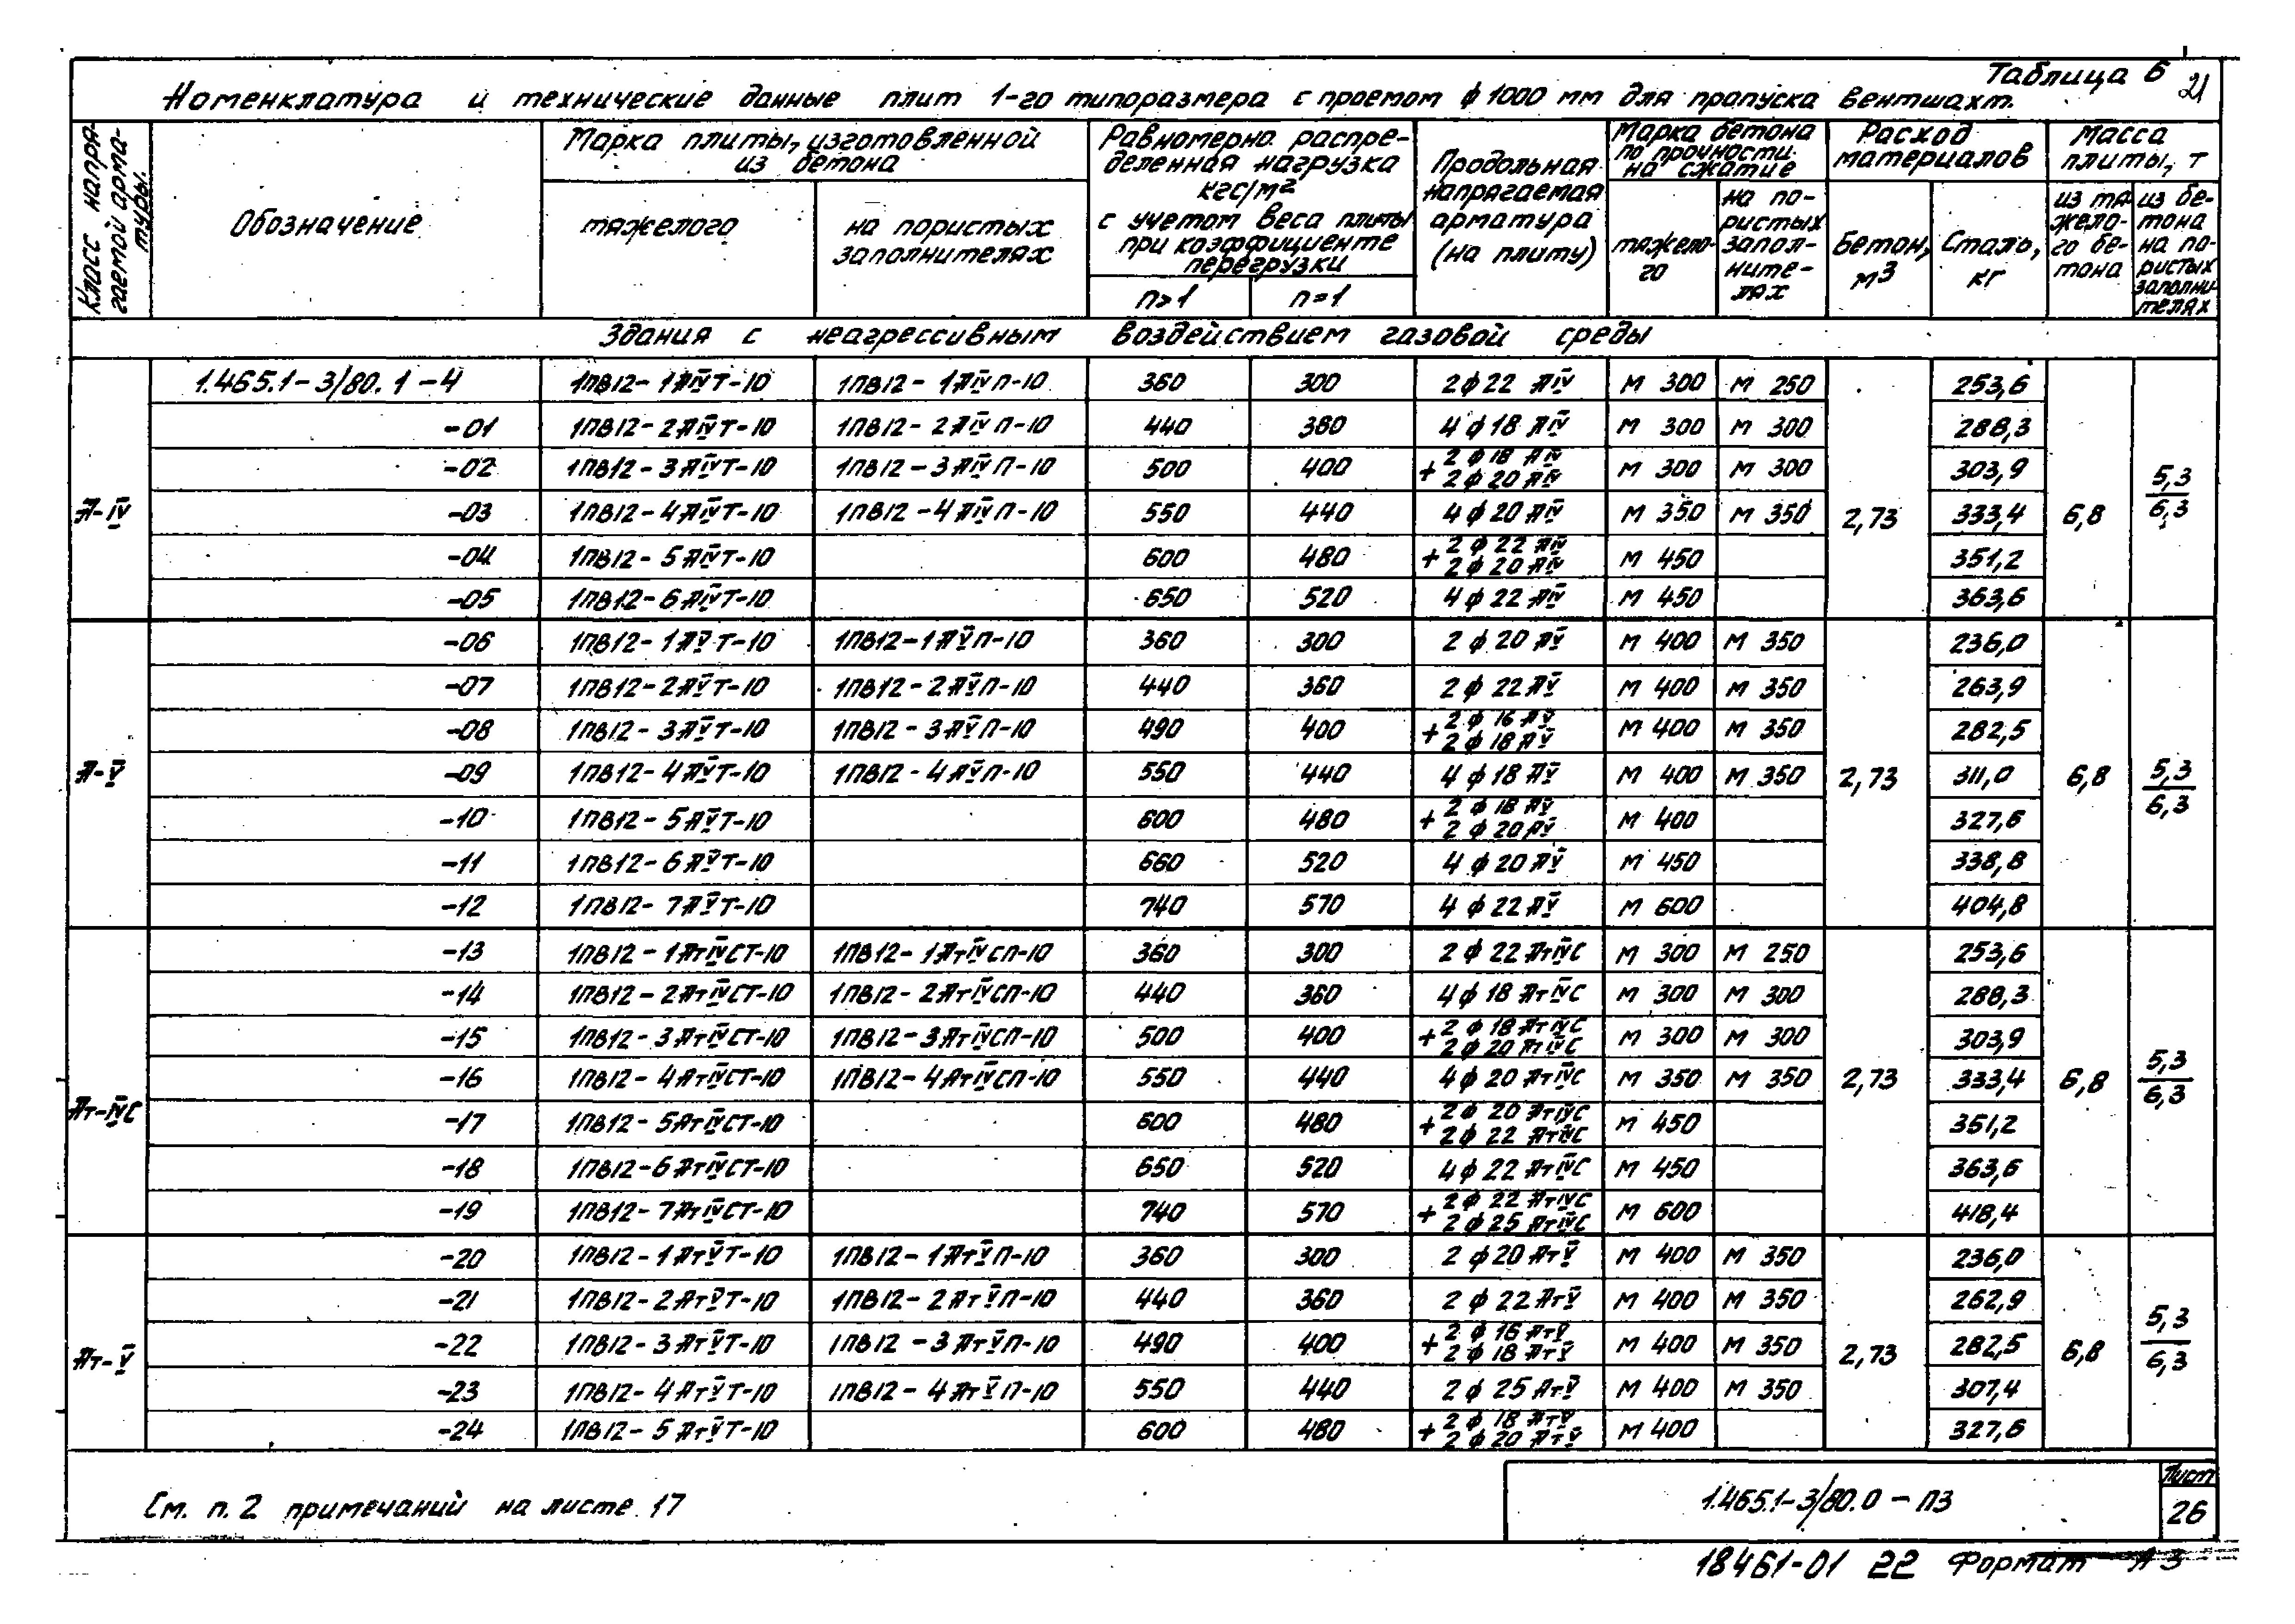 Таблица 6
21
Номенклатура и технические данные плит 1-го типоразмера с проемом ф 1000 мм для пропуска вентшахт.
Класс напрягаемой арматуры
Обозначение
Марка плиты, изготовленной из бетона
тяжелого
на пористых заполнителях
Равномерно распределенная нагрузка кгс/м² с учетом веса плиты при коэффициенте перегрузки
n>1
n=1
Продольная напрягаемая арматура (на плиту)
Марка бетона по прочности на сжатие
тяжелого
на пористых заполнителях
Расход материалов
Бетон, м3
Сталь, кг
Масса плиты, т
из тяжелого бетона
из бетона на пористых заполнителях
Здания с неагрессивным воздействием газовой среды
А-IV
1.465.1-3/80.1-4 1ПВ12-1АIVТ-10 1ПВ12-1АIVП-10 360 300 2ф22 АIV М 300 М 250 253,6
-01 1ПВ12-2АIVТ-10 1ПВ12-2АIVП-10 440 360 4ф18 АIV М 300 М 300 288,3
-02 1ПВ12-3АIVТ-10 1ПВ12-3АIVП-10 500 400 2ф18 АIV + 2ф20 АIV М 300 М 300 303,9
-03 1ПВ12-4АIVТ-10 1ПВ12-4АIVП-10 550 440 4ф20 АIV М 350 М 350 2,73 333,4 6,8 5,3/6,3
-04 1ПВ12-5АIVТ-10 600 480 2ф22 АIV + 2ф20 АIV М 450 351,2
-05 1ПВ12-6АIVТ-10 650 520 4ф22 АIV М 450 363,6
А-V
-06 1ПВ12-1АVТ-10 1ПВ12-1АVП-10 360 300 2ф20 АV М 400 М 350 236,0
-07 1ПВ12-2АVТ-10 1ПВ12-2АVП-10 440 360 2ф22 АV М 400 М 350 263,9
-08 1ПВ12-3АVТ-10 1ПВ12-3АVП-10 490 400 2ф16 АV + 2ф18 АV М 400 М 350 282,5
-09 1ПВ12-4АVТ-10 1ПВ12-4АVП-10 550 440 4ф18 АV М 400 М 350 2,73 311,0 6,8 5,3/6,3
-10 1ПВ12-5АVТ-10 600 480 2ф18 АV + 2ф20 АV М 400 327,6
-11 1ПВ12-6АVТ-10 660 520 4ф20 АV М 450 338,8
-12 1ПВ12-7АVТ-10 740 570 4ф22 АV М 600 404,8
Ат-IVС
-13 1ПВ12-1АтIVСТ-10 1ПВ12-1АтIVСП-10 360 300 2ф22 АтIVС М 300 М 250 253,6
-14 1ПВ12-2АтIVСТ-10 1ПВ12-2АтIVСП-10 440 360 4ф18 АтIVС М 300 М 300 288,3
-15 1ПВ12-3АтIVСТ-10 1ПВ12-3АтIVСП-10 500 400 2ф18 АтIVС + 2ф20 АтIVС М 300 М 300 303,9
-16 1ПВ12-4АтIVСТ-10 1ПВ12-4АтIVСП-10 550 440 4ф20 АтIVС М 350 М 350 2,73 333,4 6,8 5,3/6,3
-17 1ПВ12-5АтIVСТ-10 600 480 2ф20 АтIVС + 2ф22 АтIVС М 450 351,2
-18 1ПВ12-6АтIVСТ-10 650 520 4ф22 АтIVС М 450 363,6
-19 1ПВ12-7АтIVСТ-10 740 570 2ф22 АтIVС + 2ф25 АтIVС М 600 418,4
Ат-V
-20 1ПВ12-1АтVТ-10 1ПВ12-1АтVП-10 360 300 2ф20 АтV М 400 М 350 236,0
-21 1ПВ12-2АтVТ-10 1ПВ12-2АтVП-10 440 360 2ф22 АтV М 400 М 350 262,9
-22 1ПВ12-3АтVТ-10 1ПВ12-3АтVП-10 490 400 2ф16 АтV + 2ф18 АтV М 400 М 350 2,73 282,5 6,8 5,3/6,3
-23 1ПВ12-4АтVТ-10 1ПВ12-4АтVП-10 550 440 2ф25 АтV М 400 М 350 307,4
-24 1ПВ12-5АтVТ-10 600 480 2ф18 АтV + 2ф20 АтV М 400 327,6
См. п. 2 примечаний на листе 17
1.465.1-3/80.0-ПЗ
Лист
26
18461-01 22 Формат А3